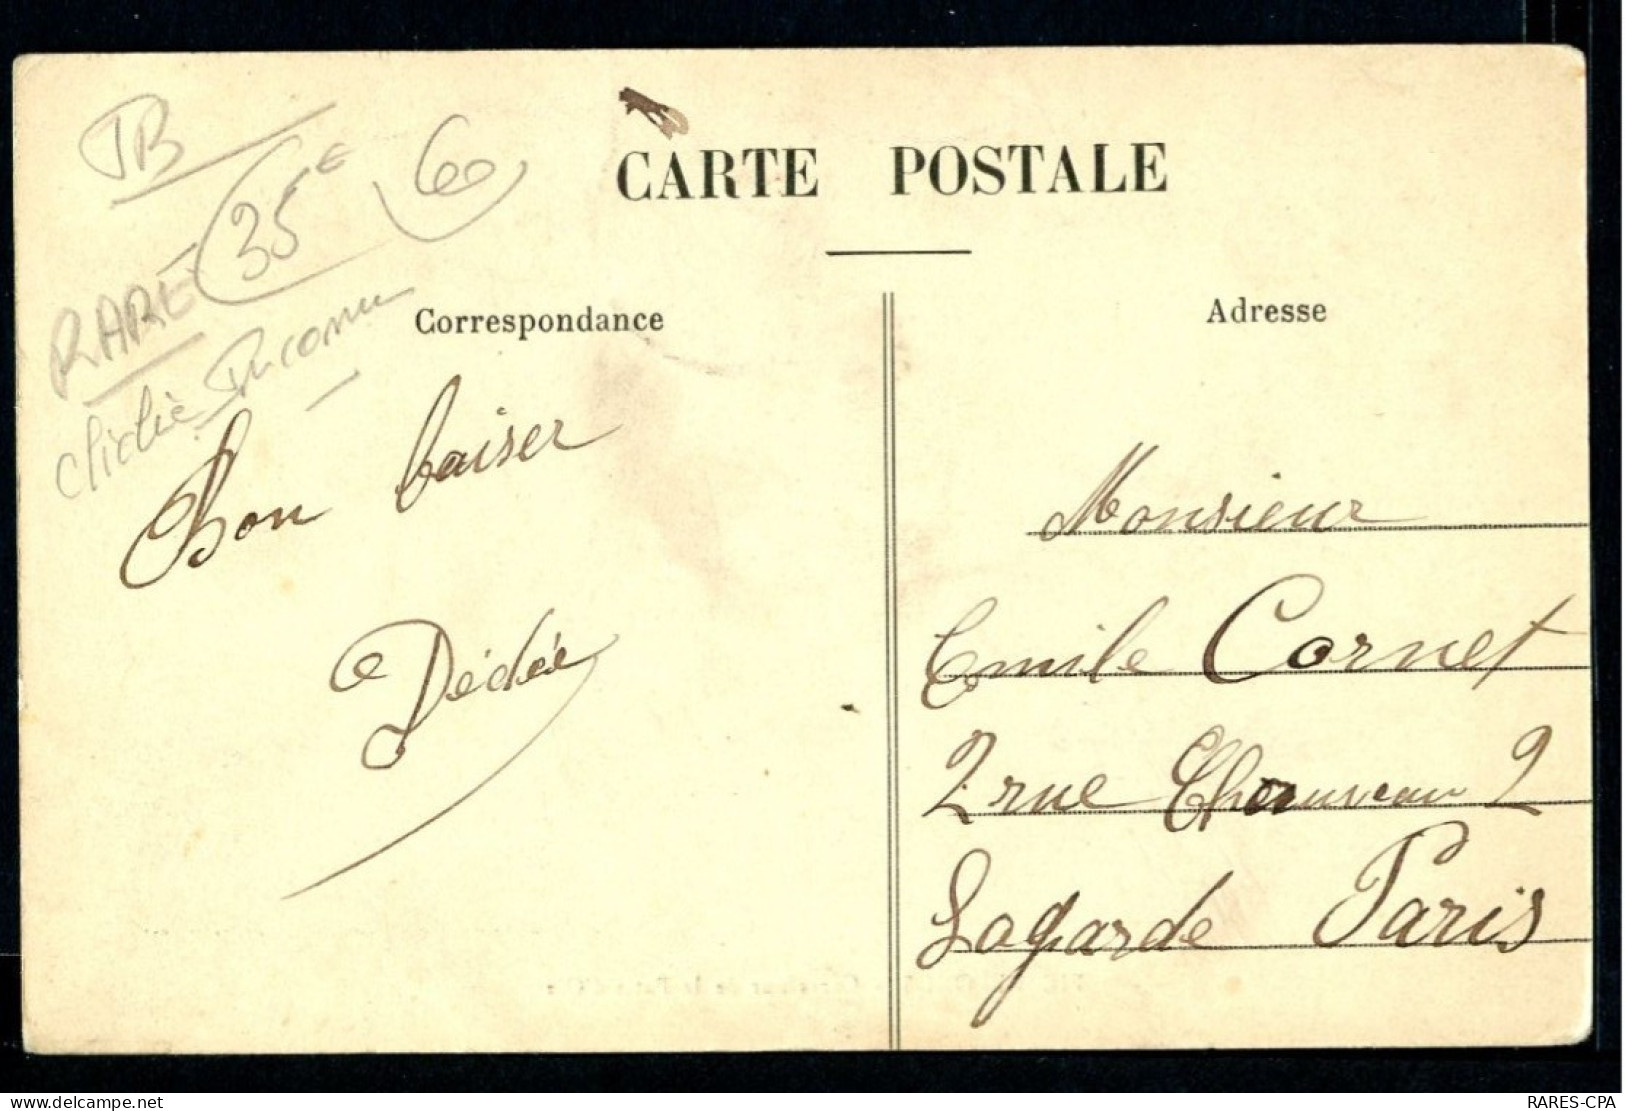 TB
35€
60
RARE
cliché Inconnu
CARTE POSTALE
Correspondance
Adresse
Bon baiser
Dédée
Monsieur
Emile Cornet
2 rue Chauveau 2
Lagarde Paris
RARES-CPA